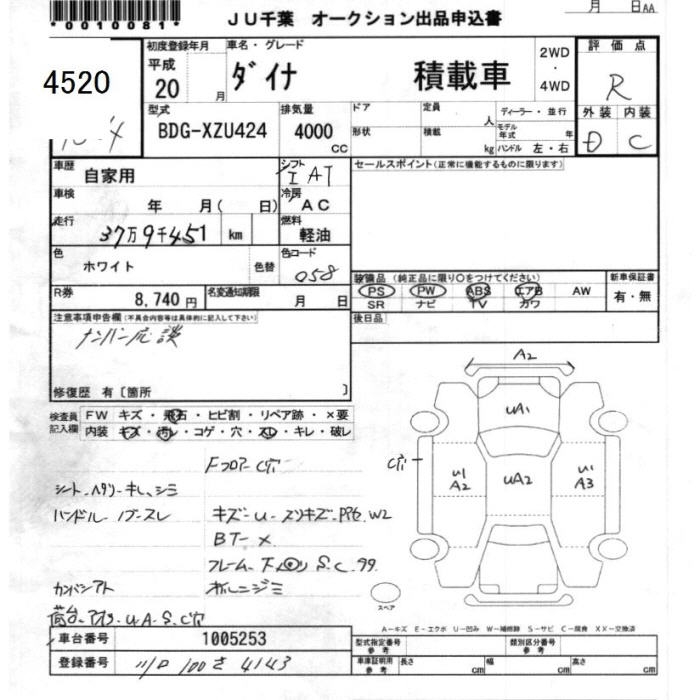 *0010081*
JU千葉 オークション出品申込書
月 日AA
4520
初度登録年月 平成 20 月
車名・グレード ダイナ 積載車
2WD ・ 4WD
評価点 R
外装 内装
D C
型式 BDG-XZU424
排気量 4000 cc
ドア 形状
定員 人
積載 kg
ディーラー・並行
モデル年式 年
ハンドル 左・右
車歴 自家用
シフト I AT
セールスポイント(正常に機能するものに限ります)
車検 年 月( 日)
冷房 AC
走行 37万9千451 km
燃料 軽油
色 ホワイト 色替
色コード 058
装備品 (純正品に限り○をつけてください)
PS PW ABS エアB AW
SR ナビ TV カワ
新車保証書
有・無
R券 8,740円
名変通知期限 月 日
後日品
注意事項申告欄(不具合内容等は具体的に記入して下さい)
ナンバー応談
修復歴 有〔箇所 〕
検査員記入欄
FW キズ・飛石・ヒビ割・リペア跡・×要
内装 キズ・汚レ・コゲ・穴・スレ・キレ・破レ
Fフロアー C穴
シート ヘタリ キレ、シミ
ハンドル
キズ U スリキズ W2
BT- X
フレーム 下廻り S.C.
カンバンアト
荷台 UA S C穴
A2
UA1
C穴
U1 A2
UA2
U1 A3
スペア
A-キズ E-エクボ U-凹み W-補修跡 S-サビ C-腐食 XX-交換済
車台番号 1005253
登録番号 100 さ 4143
型式指定番号 参考
類別区分番号 参考
車庫証明用 参考 長さ cm 幅 cm 高さ cm